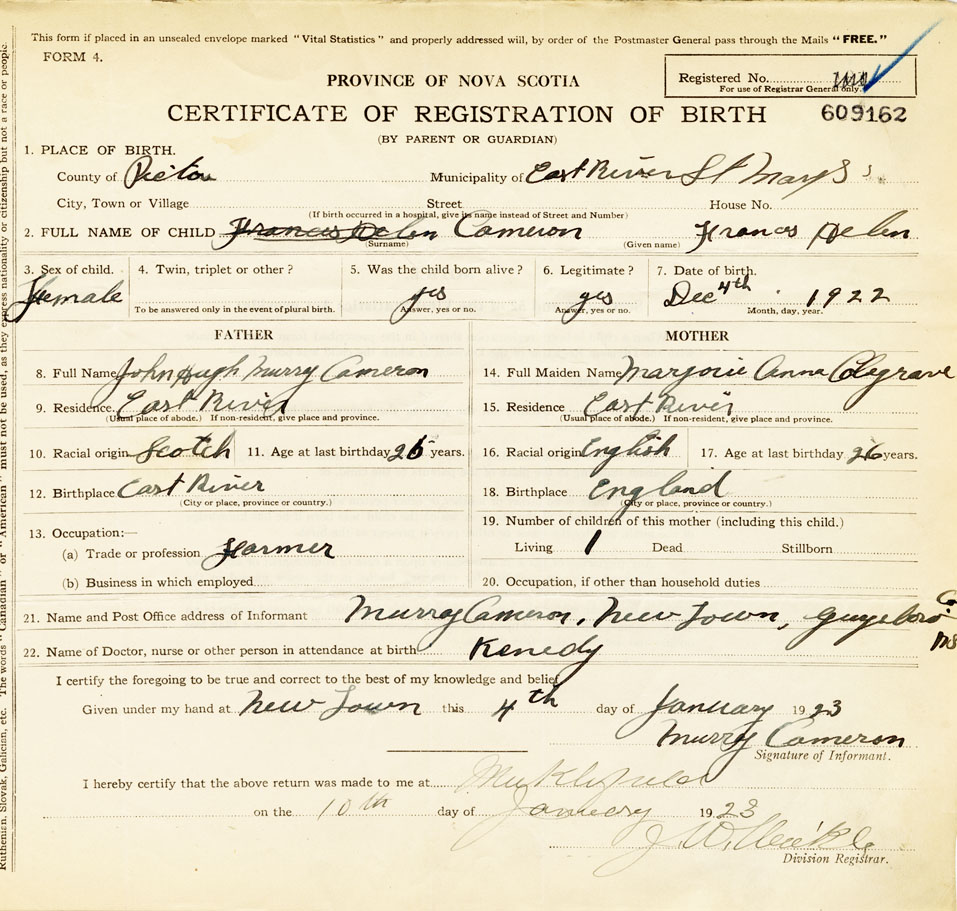 This form if placed in an unsealed envelope marked "Vital Statistics" and properly addressed will, by order of the Postmaster General pass through the Mails "FREE."
FORM 4.
Registered No.
For use of Registrar General only.
PROVINCE OF NOVA SCOTIA
609162
CERTIFICATE OF REGISTRATION OF BIRTH
(BY PARENT OR GUARDIAN)
1. PLACE OF BIRTH.
County of Pictou Municipality of East River St Marys
City, Town or Village Street House No.
(If birth occurred in a hospital, give its name instead of Street and Number)
2. FULL NAME OF CHILD Francis Helen Cameron Francis Helen
(Surname) (Given name)
3. Sex of child. 4. Twin, triplet or other? 5. Was the child born alive? 6. Legitimate? 7. Date of birth.
Female yes yes Dec 4th 1922
To be answered only in the event of plural birth. Answer, yes or no. Answer, yes or no. Month, day, year.
FATHER MOTHER
8. Full Name John Hugh Murry Cameron 14. Full Maiden Name Marjorie Anna Colgrave
9. Residence East River 15. Residence East River
(Usual place of abode.) If non-resident, give place and province. (Usual place of abode.) If non-resident, give place and province.
10. Racial origin Scotch 11. Age at last birthday 26 years. 16. Racial origin English 17. Age at last birthday 26 years.
12. Birthplace East River 18. Birthplace England
(City or place, province or country.) (City or place, province or country.)
19. Number of children of this mother (including this child.)
13. Occupation:—
(a) Trade or profession Farmer Living 1 Dead Stillborn
(b) Business in which employed 20. Occupation, if other than household duties
21. Name and Post Office address of Informant Murry Cameron, New Town, Guysboro Co NS
22. Name of Doctor, nurse or other person in attendance at birth Kenedy
I certify the foregoing to be true and correct to the best of my knowledge and belief
Given under my hand at New Town this 4th day of January 1923
Murry Cameron
Signature of Informant.
I hereby certify that the above return was made to me at
on the 10th day of January 1923
Division Registrar.
Ruthenian, Slovak, Galician, etc. The words "Canadian" or "American" must not be used, as they express nationality or citizenship but not a race or people.